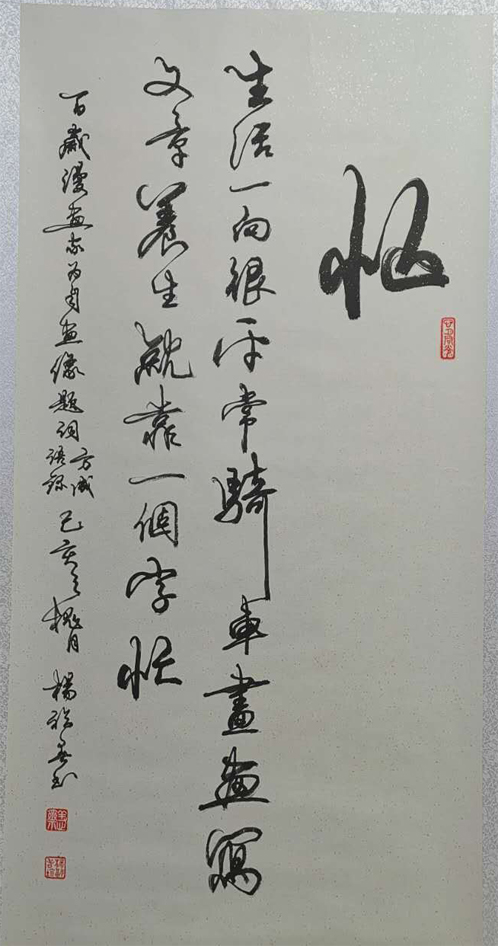 忙
生活一向很平常騎車畫畫寫
文章養生就靠一個字忙
百歲漫畫家为自畫像題詞方成語錄己亥之月楊書